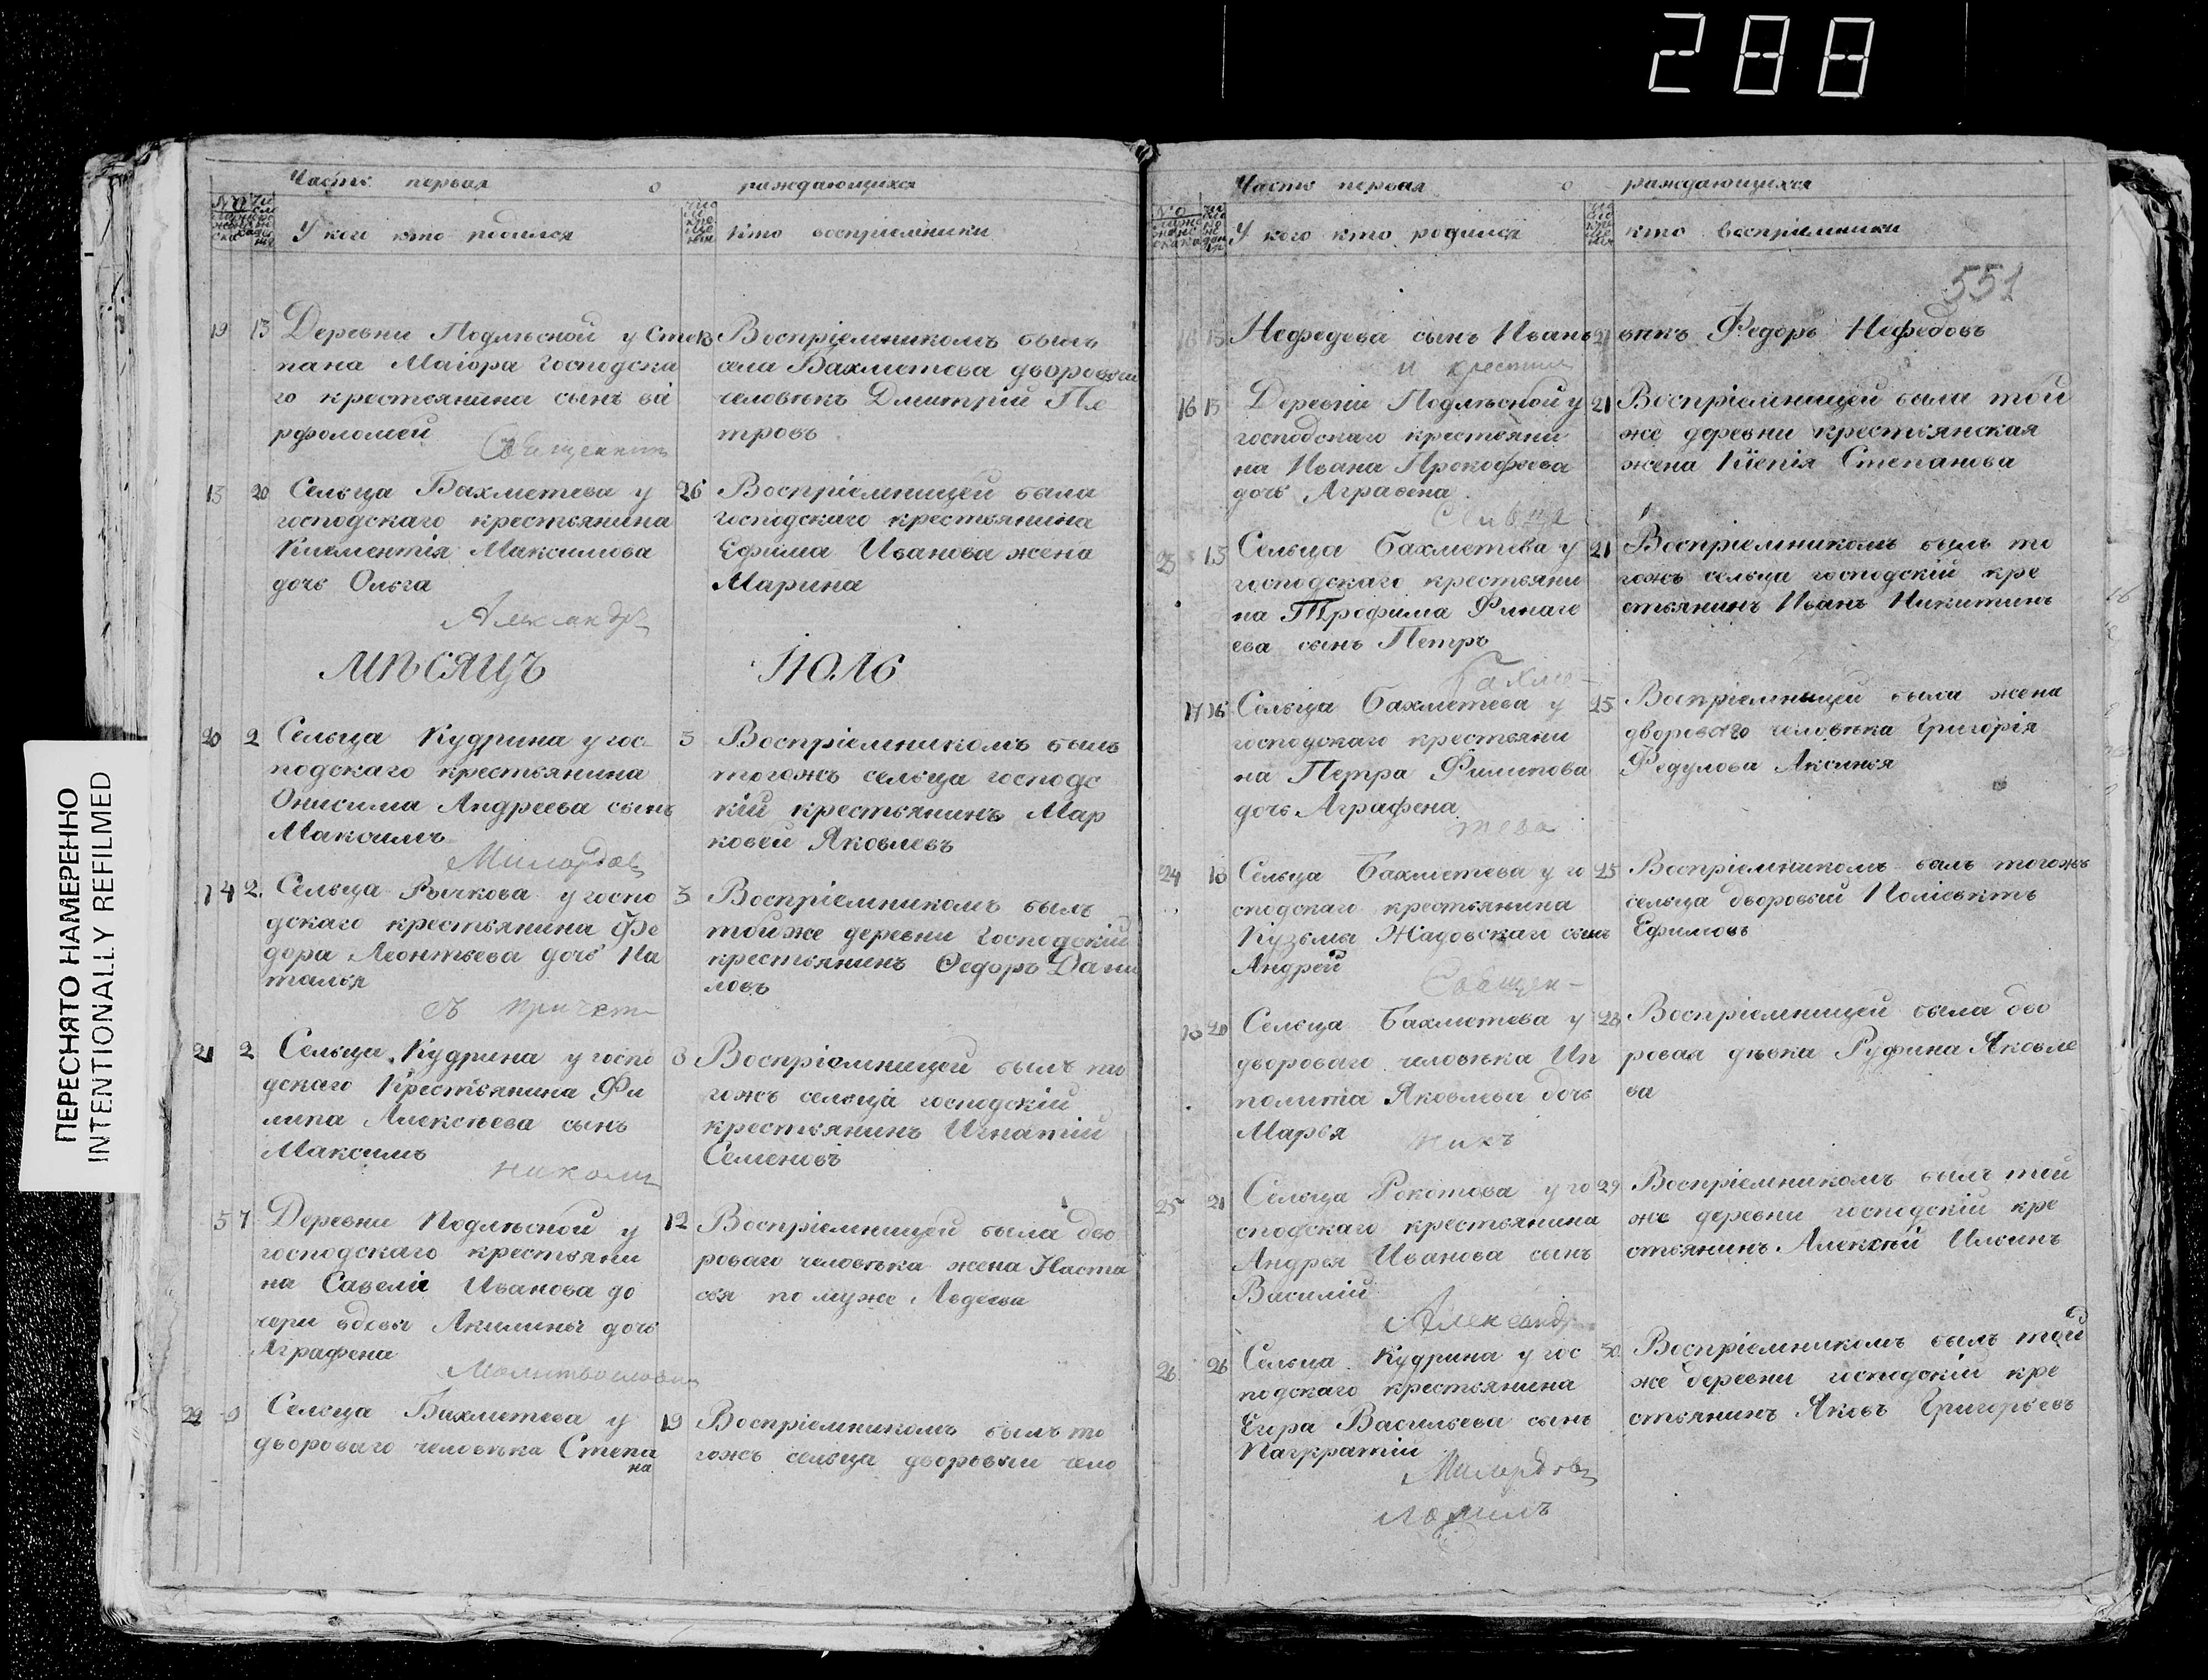 288
ПЕРЕСНЯТО НАМЕРЕННО
INTENTIONALLY REFILMED
Часть первая о раждающихся
У кого кто родился
Кто восприемники
19 13 Деревни Подлѣсной у Сте
пана Маіора Господска
го крестьянина сынъ ва
рфоломей
Священник
13 Воспріемникомъ былъ
села Бахметева дворовой
человѣкъ Дмитрій Пе
тровъ
13 20 Сельца Бахметева у
господскаго крестьянина
Климентія Максимова
дочь Ольга
Александръ
26 Воспріемницей была
господскаго крестьянина
Ефима Иванова жена
Марина
мѣсяцъ Іюль
20 2 Сельца Кудрина у гос
подскаго крестьянина
Онисима Андреева сынъ
Максимъ
Милордовъ
3 Воспріемникомъ былъ
тогожъ сельца господс
кій крестьянинъ Мар
ковей Яковлевъ
14 2 Сельца Рычкова у госпо
дскаго крестьянина Фе
дора Леонтьева дочь На
талья
съ причет
3 Воспріемникомъ былъ
тойже деревни господскій
крестьянинъ Ѳедоръ Дани
ловъ
21 2 Сельца Кудрина у госпо
дскаго Крестьянина Фи
липа Алексѣева сынъ
Максимъ
никами
3 Воспріемницей былъ то
гожъ сельца господскій
крестьянинъ Игнатій
Семеновъ
15 7 Деревни Подлѣсной у
господскаго крестьяни
на Савелія Иванова до
чери вдовы Акилины дочь
Аграфена
Молитвословил
12 Воспріемницей была дво
роваго человѣка жена Наста
сья по мужѣ Авдеева
22 9 Сельца Бахметева у
двороваго человѣка Степа
на
19 Воспріемникомъ былъ то
гожъ сельца дворовый чело
Часть первая о раждающихся
У кого кто родился
кто воспріемники
551
Нефедева сынъ Иванъ
и крестил
21 вѣкъ Федоръ Нефедовъ
16 15 Деревни Подлѣсной у
господскаго крестьяни
на Ивана Прокофьева
дочь Агравена
21 Воспріемницей была той
же деревни крестьянская
жена Степанова
23 15 Сельца Бахметева у
господскаго крестьяни
на Трофима
ева сынъ Петръ
Бахме-
21 Воспріемникомъ былъ то
гожъ сельца господскій кре
стьянинъ Иванъ Никитинъ
17 16 Сельца Бахметева у
господскаго крестьяни
на Петра Филипова
дочь Аграфена
тева
25 Воспріемницей была жена
двороваго человѣка Григорія
Федулова Аксинья
24 18 Сельца Бахметева у го
сподскаго крестьянина
Кузьмы Жадовскаго сынъ
Андрей
Священ-
25 Воспріемникомъ былъ тогожъ
сельца дворовый Поліевктъ
Ефимовъ
18 20 Сельца Бахметева у
двороваго человѣка Ип
полита Яковлева дочь
Марья
никъ
28 Воспріемницей была дво
ровая дѣвка Руфина Яковле
ва
25 21 Сельца Рокотова у го
сподскаго крестьянина
Андрея Иванова сынъ
Василій
Александр
29 Воспріемникомъ былъ той
же деревни господскій кре
стьянинъ Алексѣй Ильинъ
26 26 Сельца Кудрина у гос
подскаго крестьянина
Егора Васильева сынъ
Панкратій
Милордовъ
30 Воспріемникомъ былъ той
же деревни господскій кре
стьянинъ Яковъ Григорьевъ